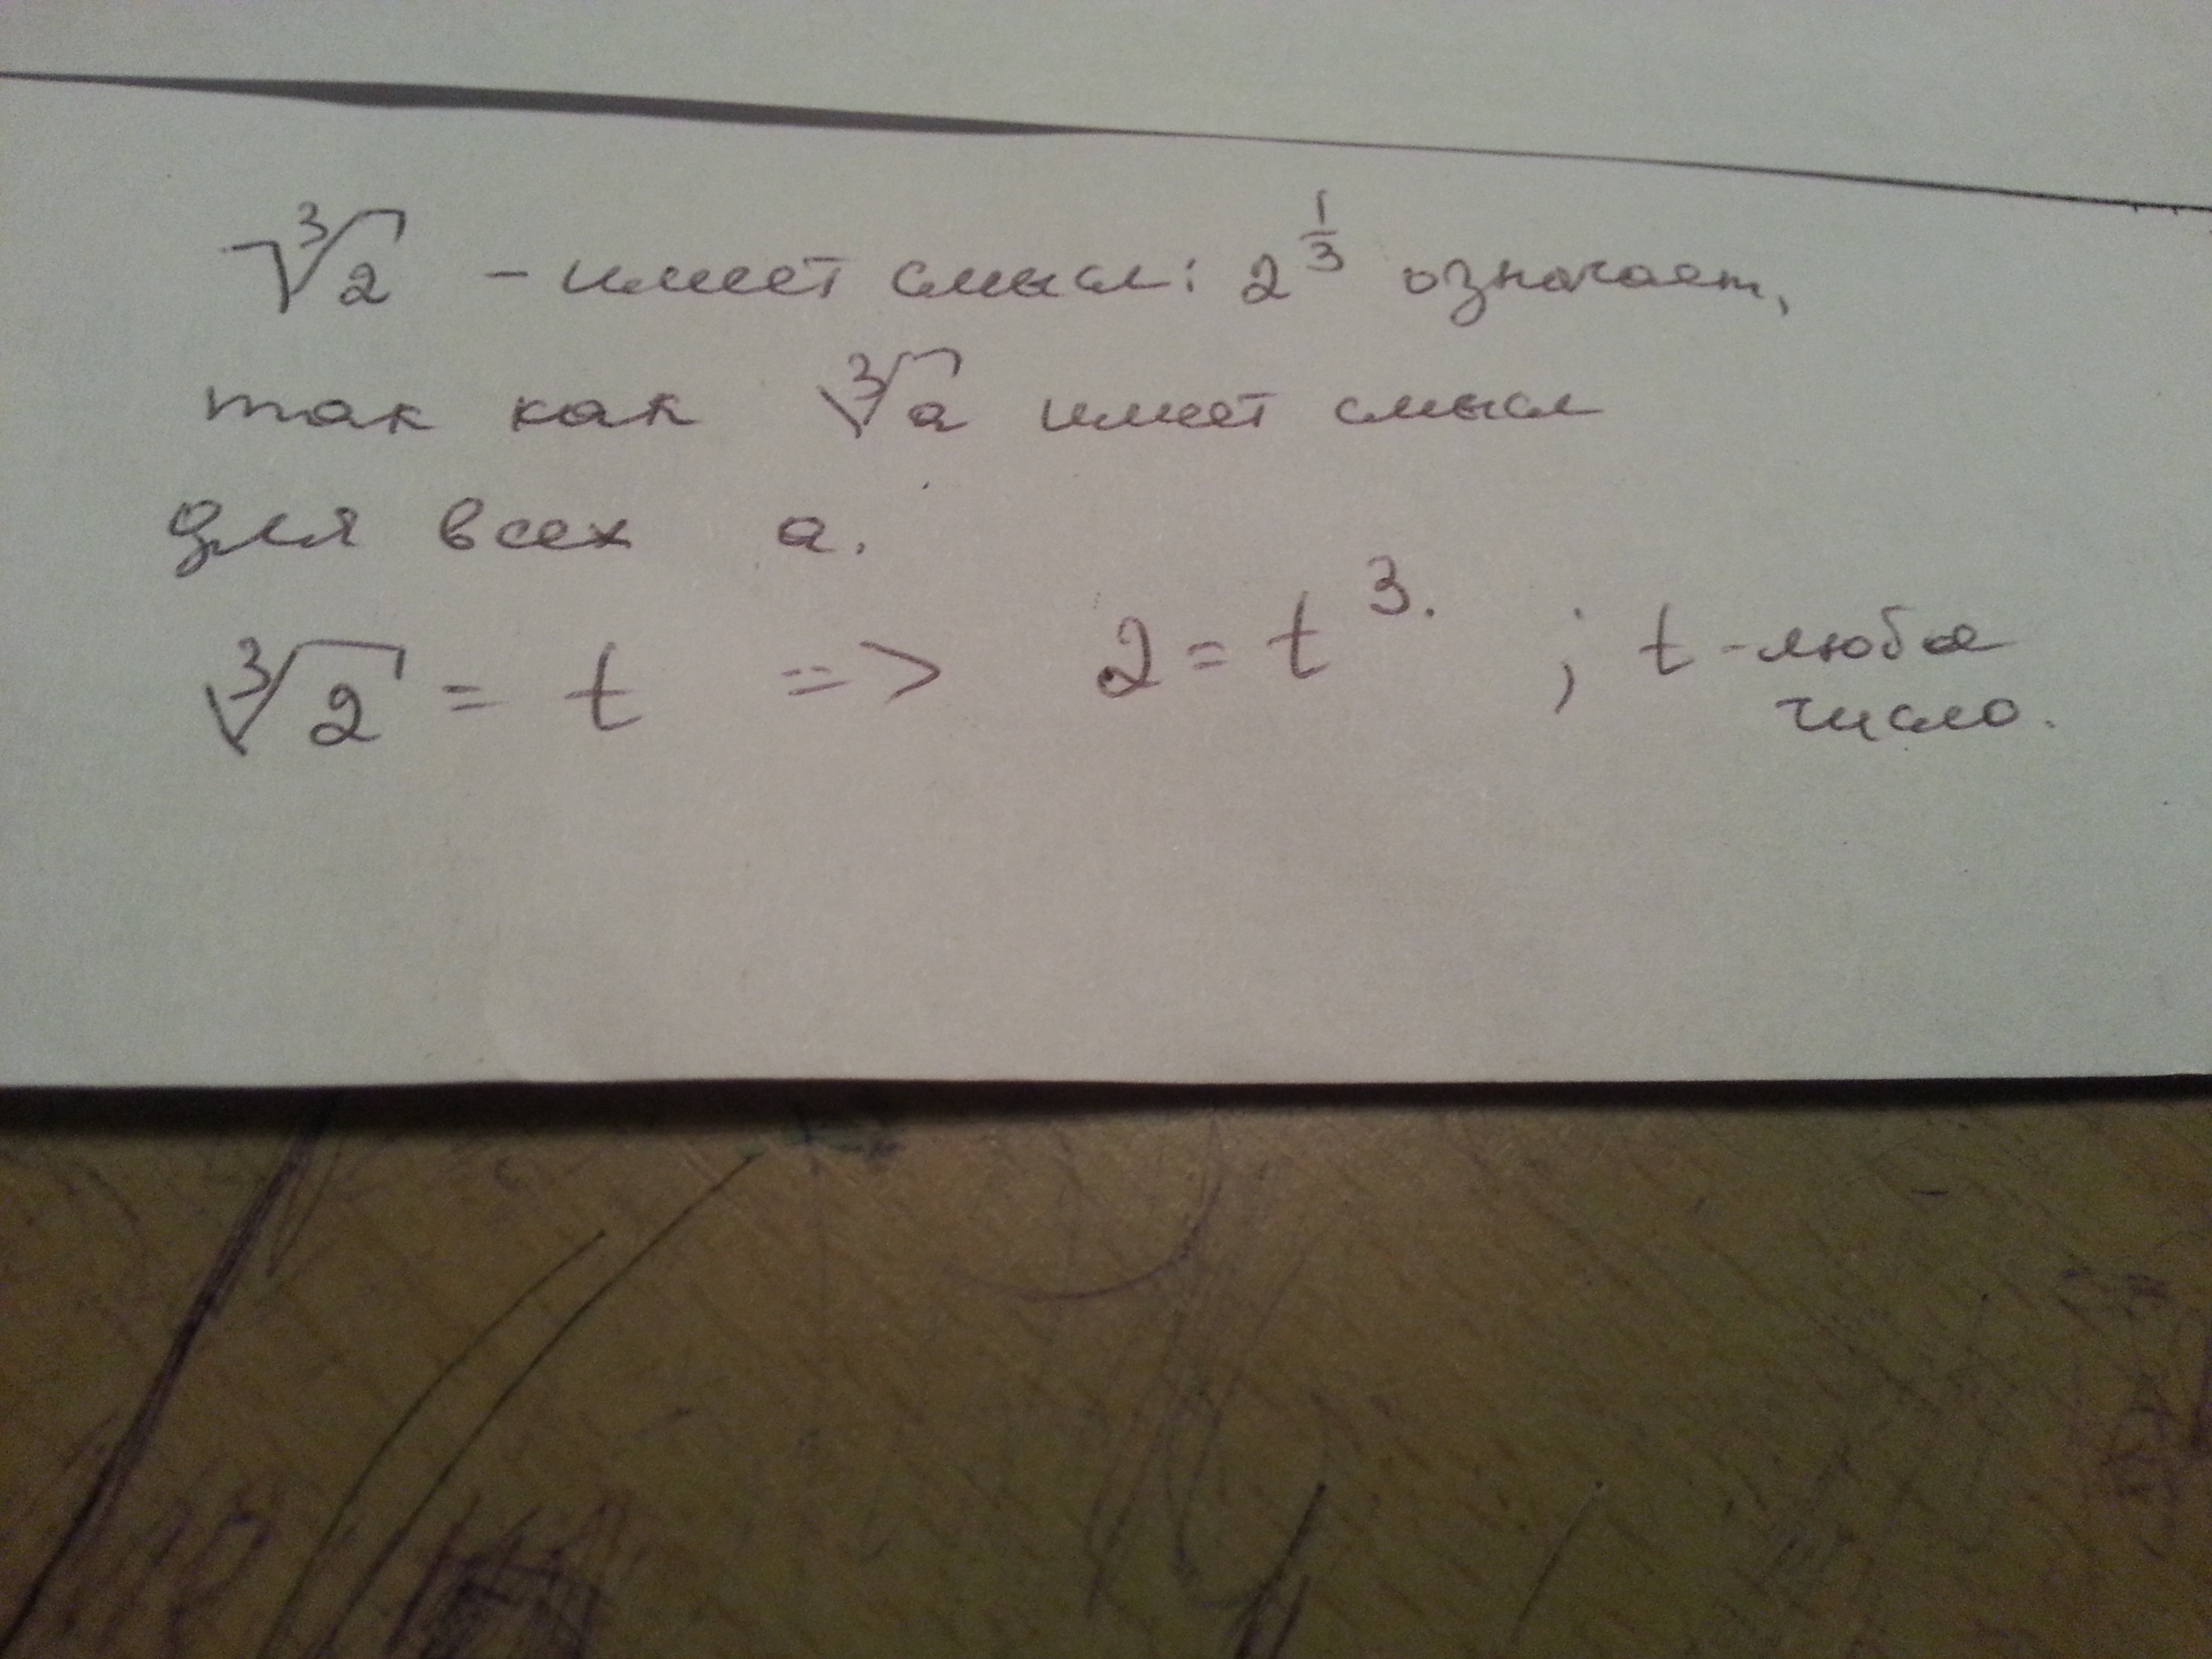 ∛2 – имеет смысл: 2^(1/3) означает,
так как ∛a имеет смысл
для всех a.
∛2 = t => 2 = t³. ; t - любое
число.